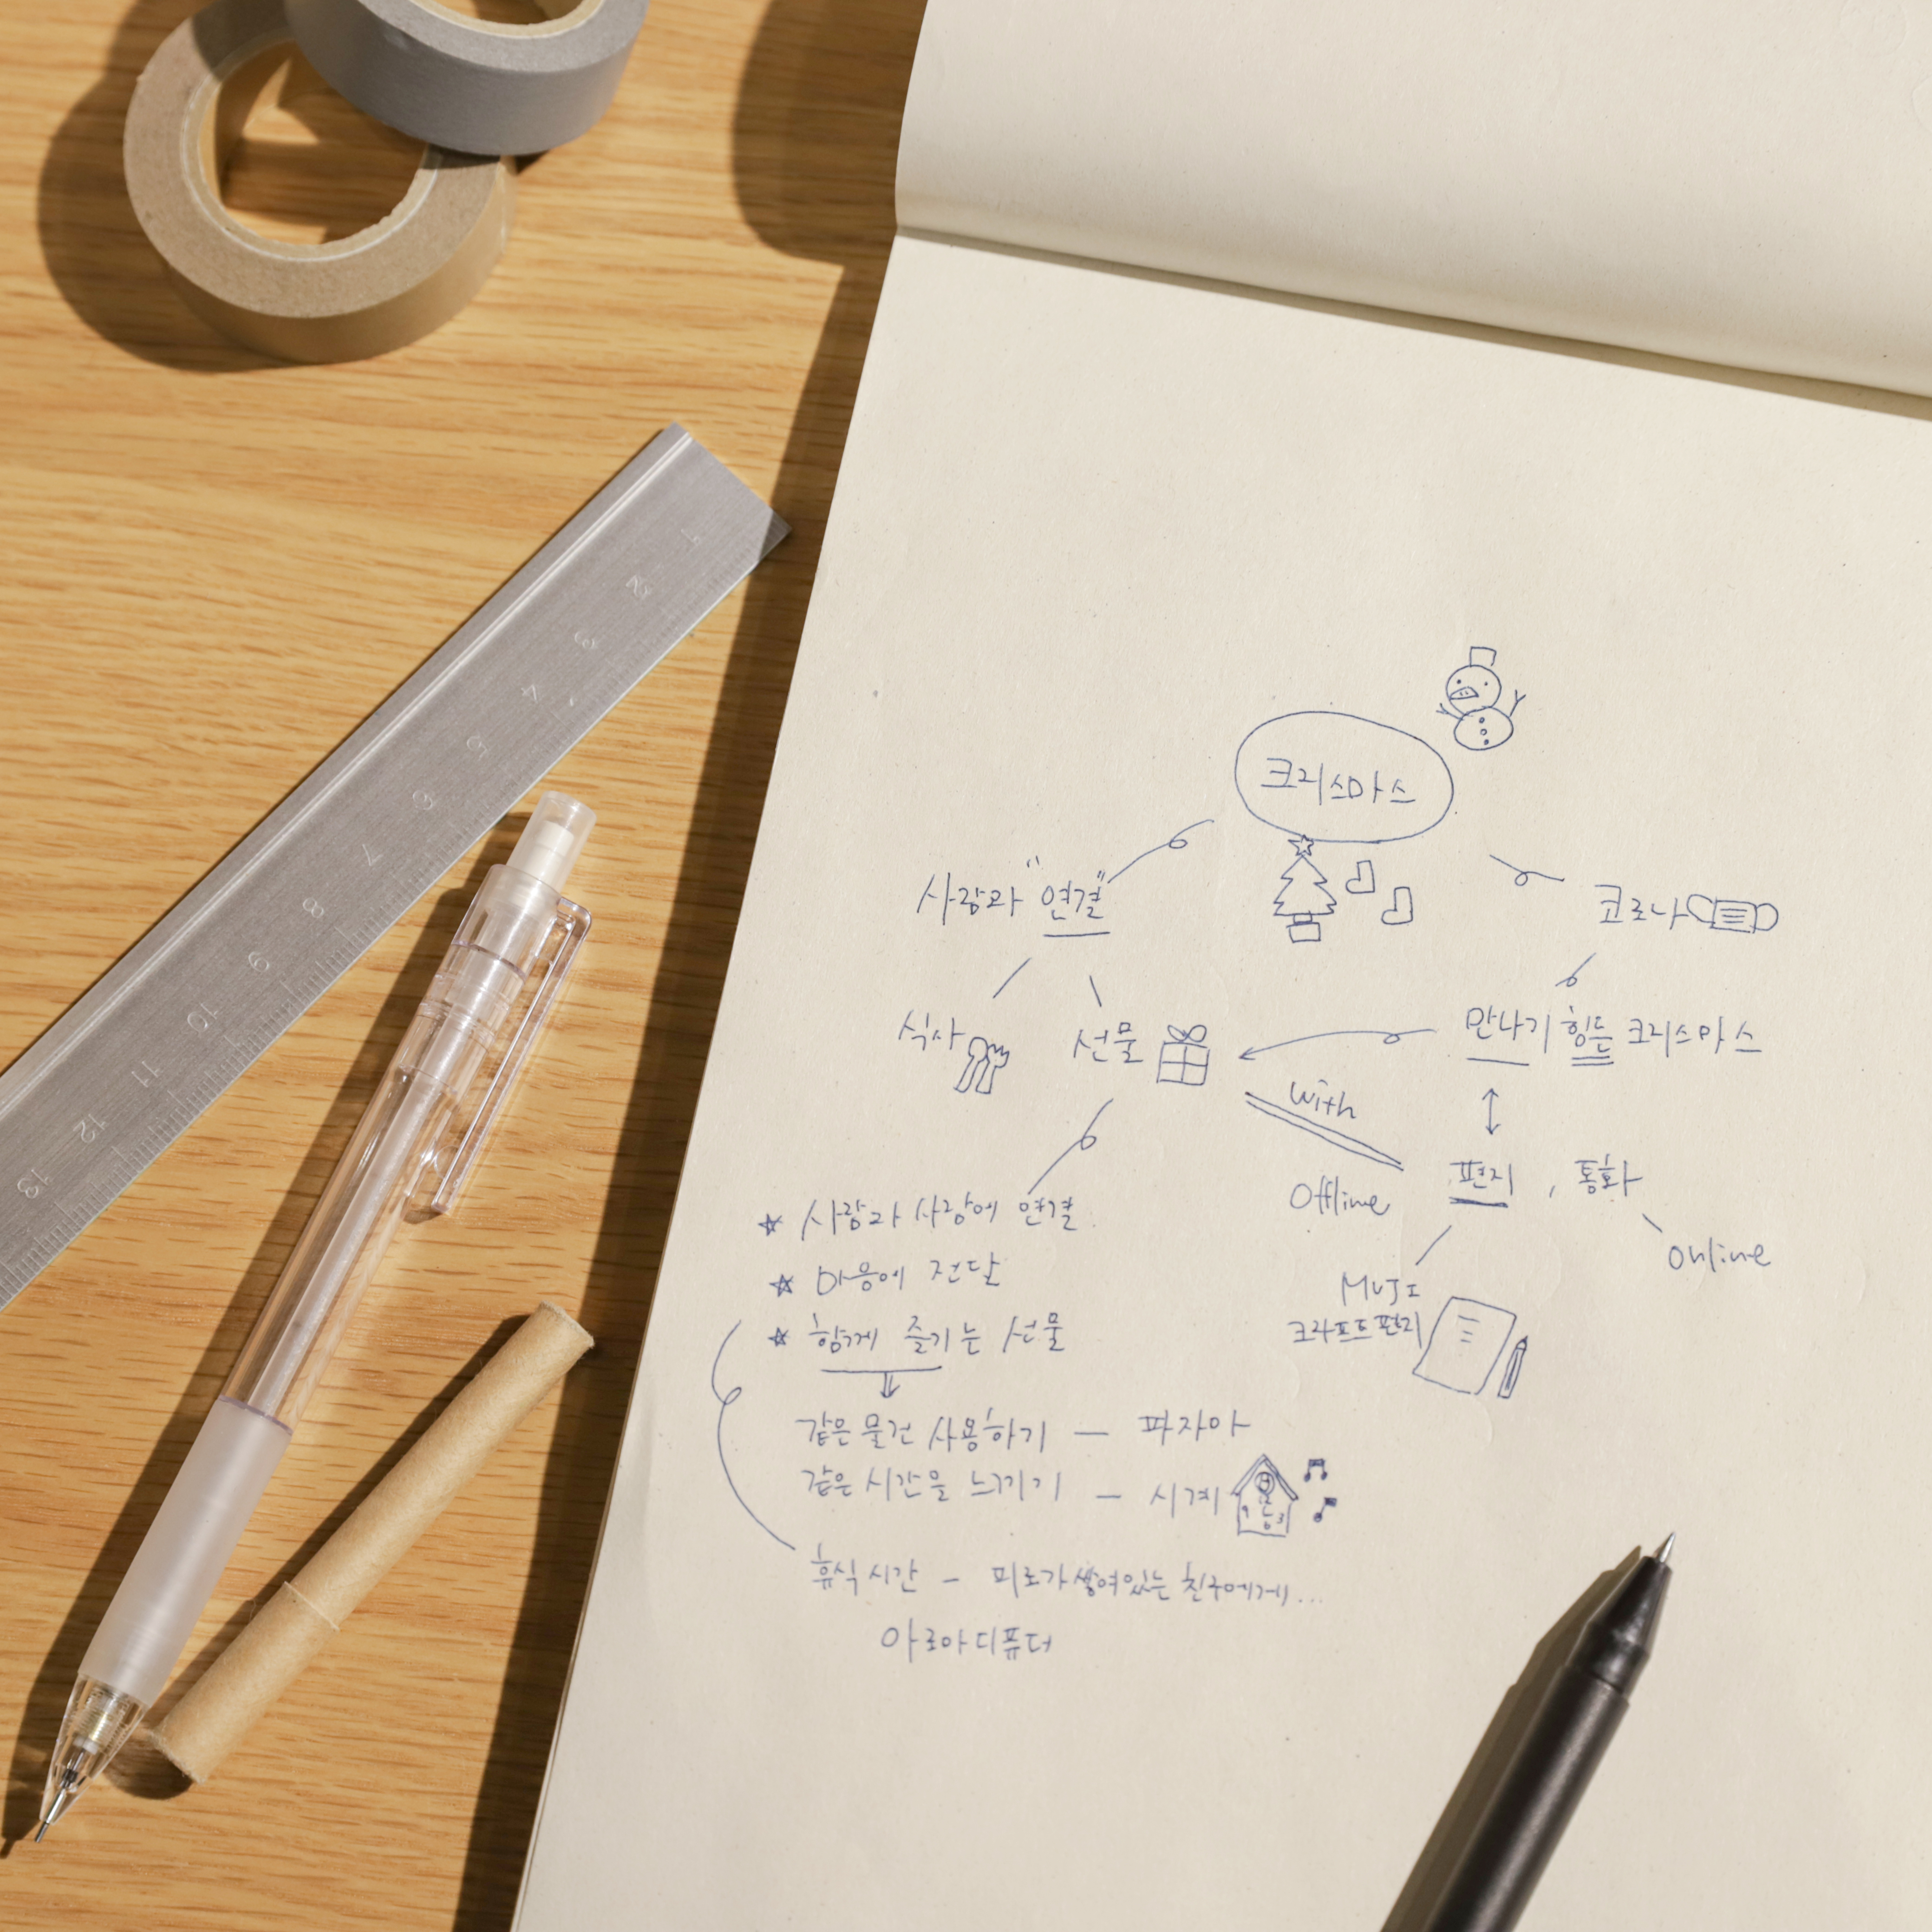 크리스마스
사람과 "연결"
코로나
식사
선물
만나기 힘든 크리스마스
with
Offline
편지, 통화
online
MUJI
크라프트편지
☆ 사람과 사람에 연결
☆ 마음에 전달
☆ 함께 즐기는 선물
같은 물건 사용하기 — 파자마
같은 시간을 느끼기 — 시계
휴식시간 - 피로가 쌓여있는 친구에게...
아로마디퓨터
1
2
3
4
5
6
7
8
9
10
11
12
13